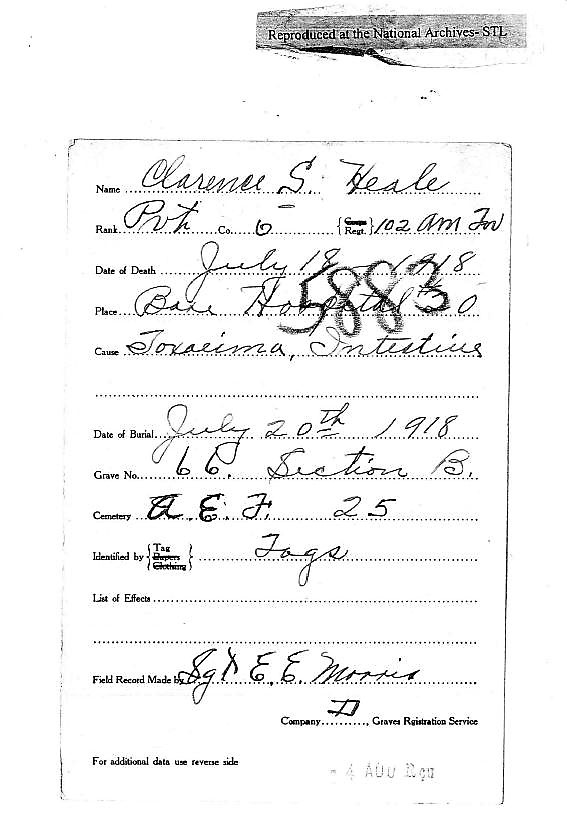 Reproduced at the National Archives- STL
Name Clarence S. Heale
Rank Pvt Co. 6 { Co. Regt. } 102 Am Tn
Date of Death July 18 1918
Place Base Hospital 30
5883
Cause Toxaeima, Intestine
Date of Burial July 20th 1918
Grave No. 66. Section B.
Cemetery A. E. F. 25
Identified by { Tag Papers Clothing } Tags
List of Effects
Field Record Made by Sgt E. E. Morris
Company D, Graves Rgistration Service
For additional data use reverse side
- 4 AUG